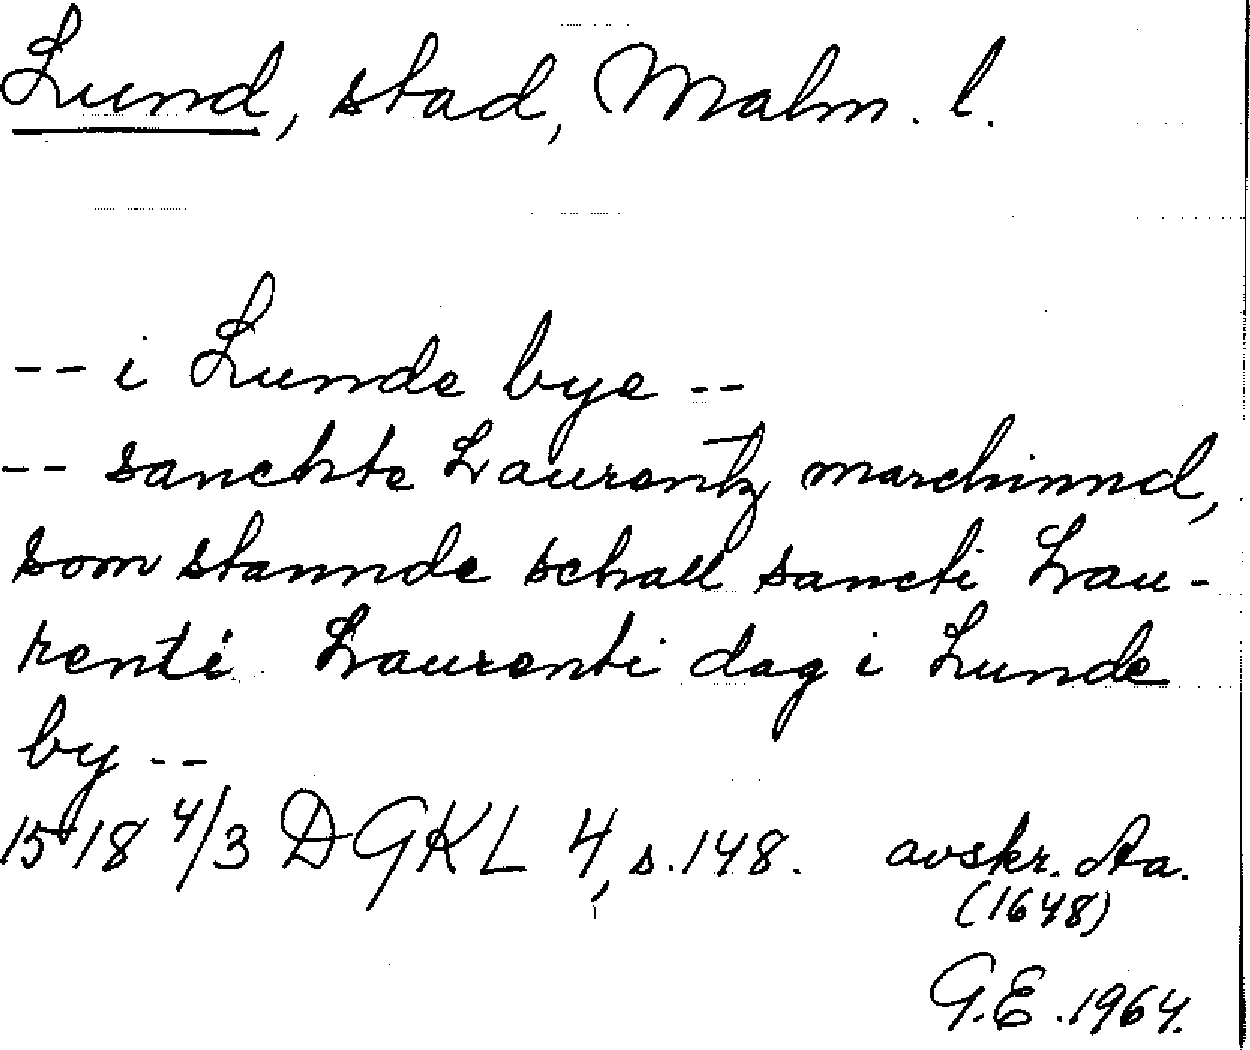 Lund, stad, Malm. l.
-- i Lunde bye --
-- sanckte Laurentz marchinnd,
som stannde schall sancti Lau-
renti Laurenti dag i Lunde
by --
1518 4/3 DGKL 4, s. 148. avskr. Aa.
(1648)
G.E. 1964.